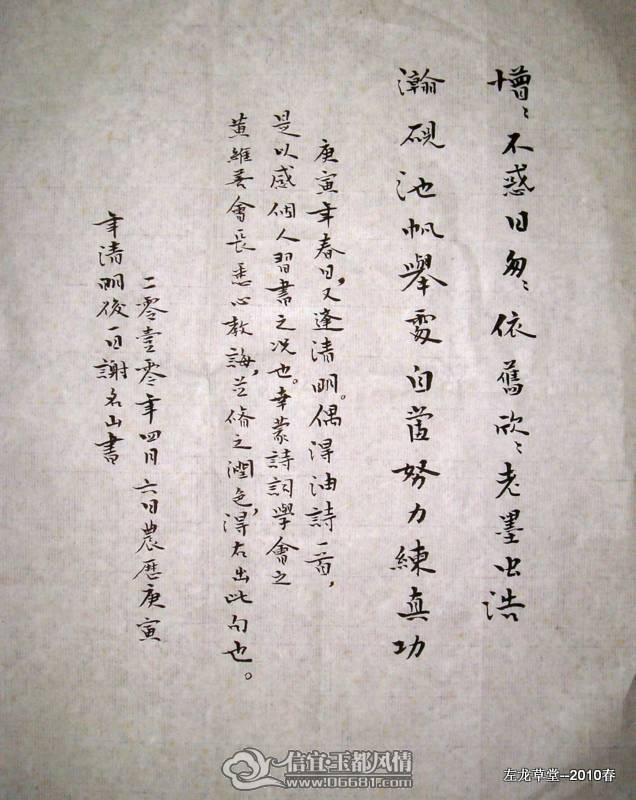 懵〻不惑日匆〻依舊欣〻老墨虫浩
瀚硯池帆舉處自當努力練真功
庚寅年春日，又逢清明。偶得油詩一首，
是以感個人習書之况也。幸蒙詩詞學會之
黄維英會長悉心教誨，並修之潤色，得右出此句也。
二零壹零年四月六日農曆庚寅
年清明後一日謝名山書
信宜玉都风情
www.06681.com
左龙草堂--2010春